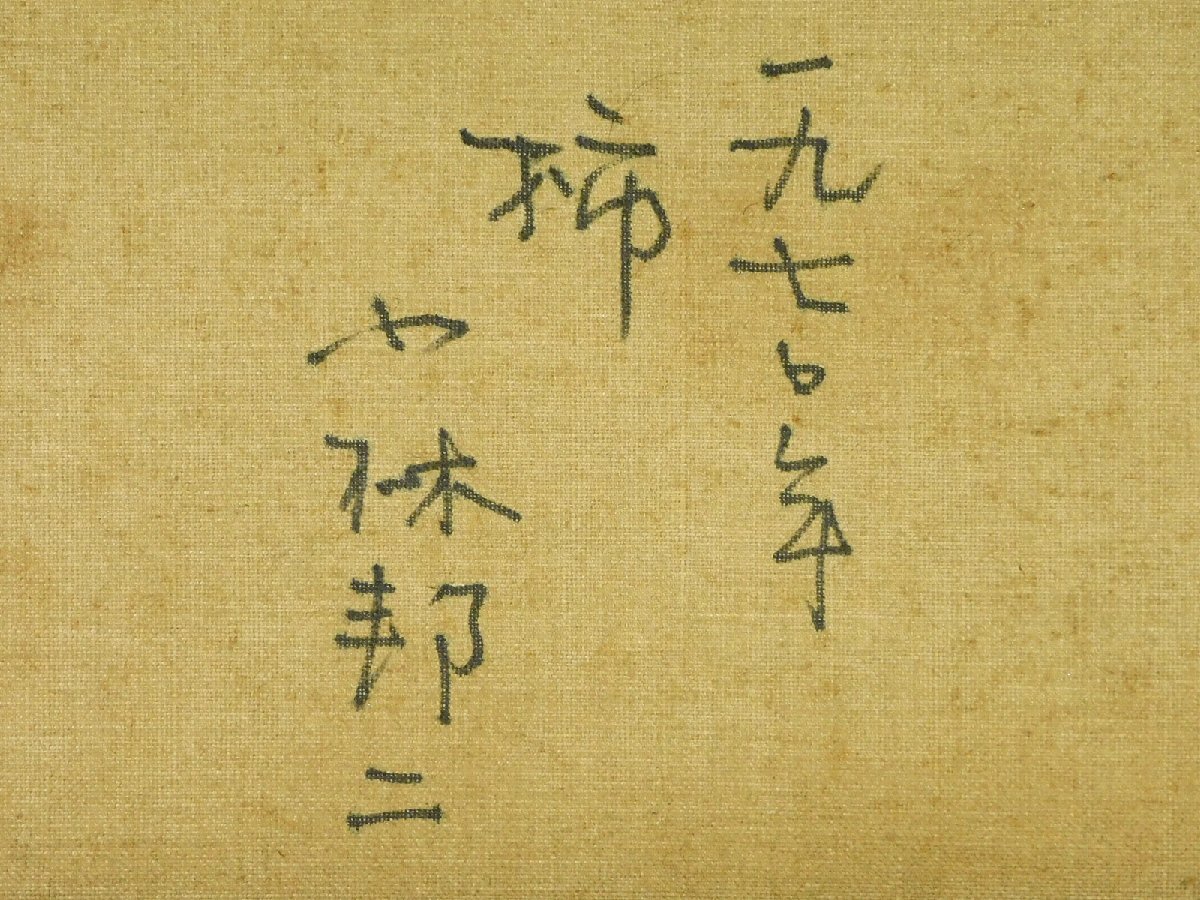 一九七〇年
柿
小林邦二